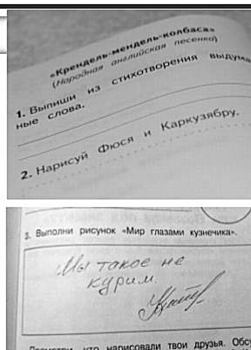 «Крендель-мендель-колбаса»
(Народная английская песенка)
1. Выпиши из стихотворения выдума
ные слова.
2. Нарисуй Фюся и Каркузябру.
3. Выполни рисунок «Мир глазами кузнечика».
Мы такое не
курим.
что нарисовали твои друзья. Обс